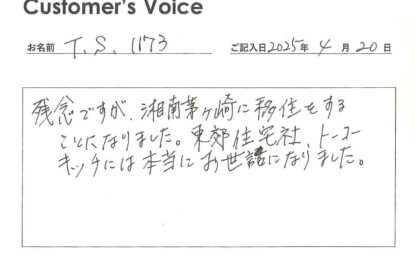 Customer's Voice
お名前 T.S. 1173 ご記入日2025年 4月20日
残念ですが、湘南茅ヶ崎に移住をする
ことになりました。東郊住宅社、トーコー
キッチには本当にお世話になりました。